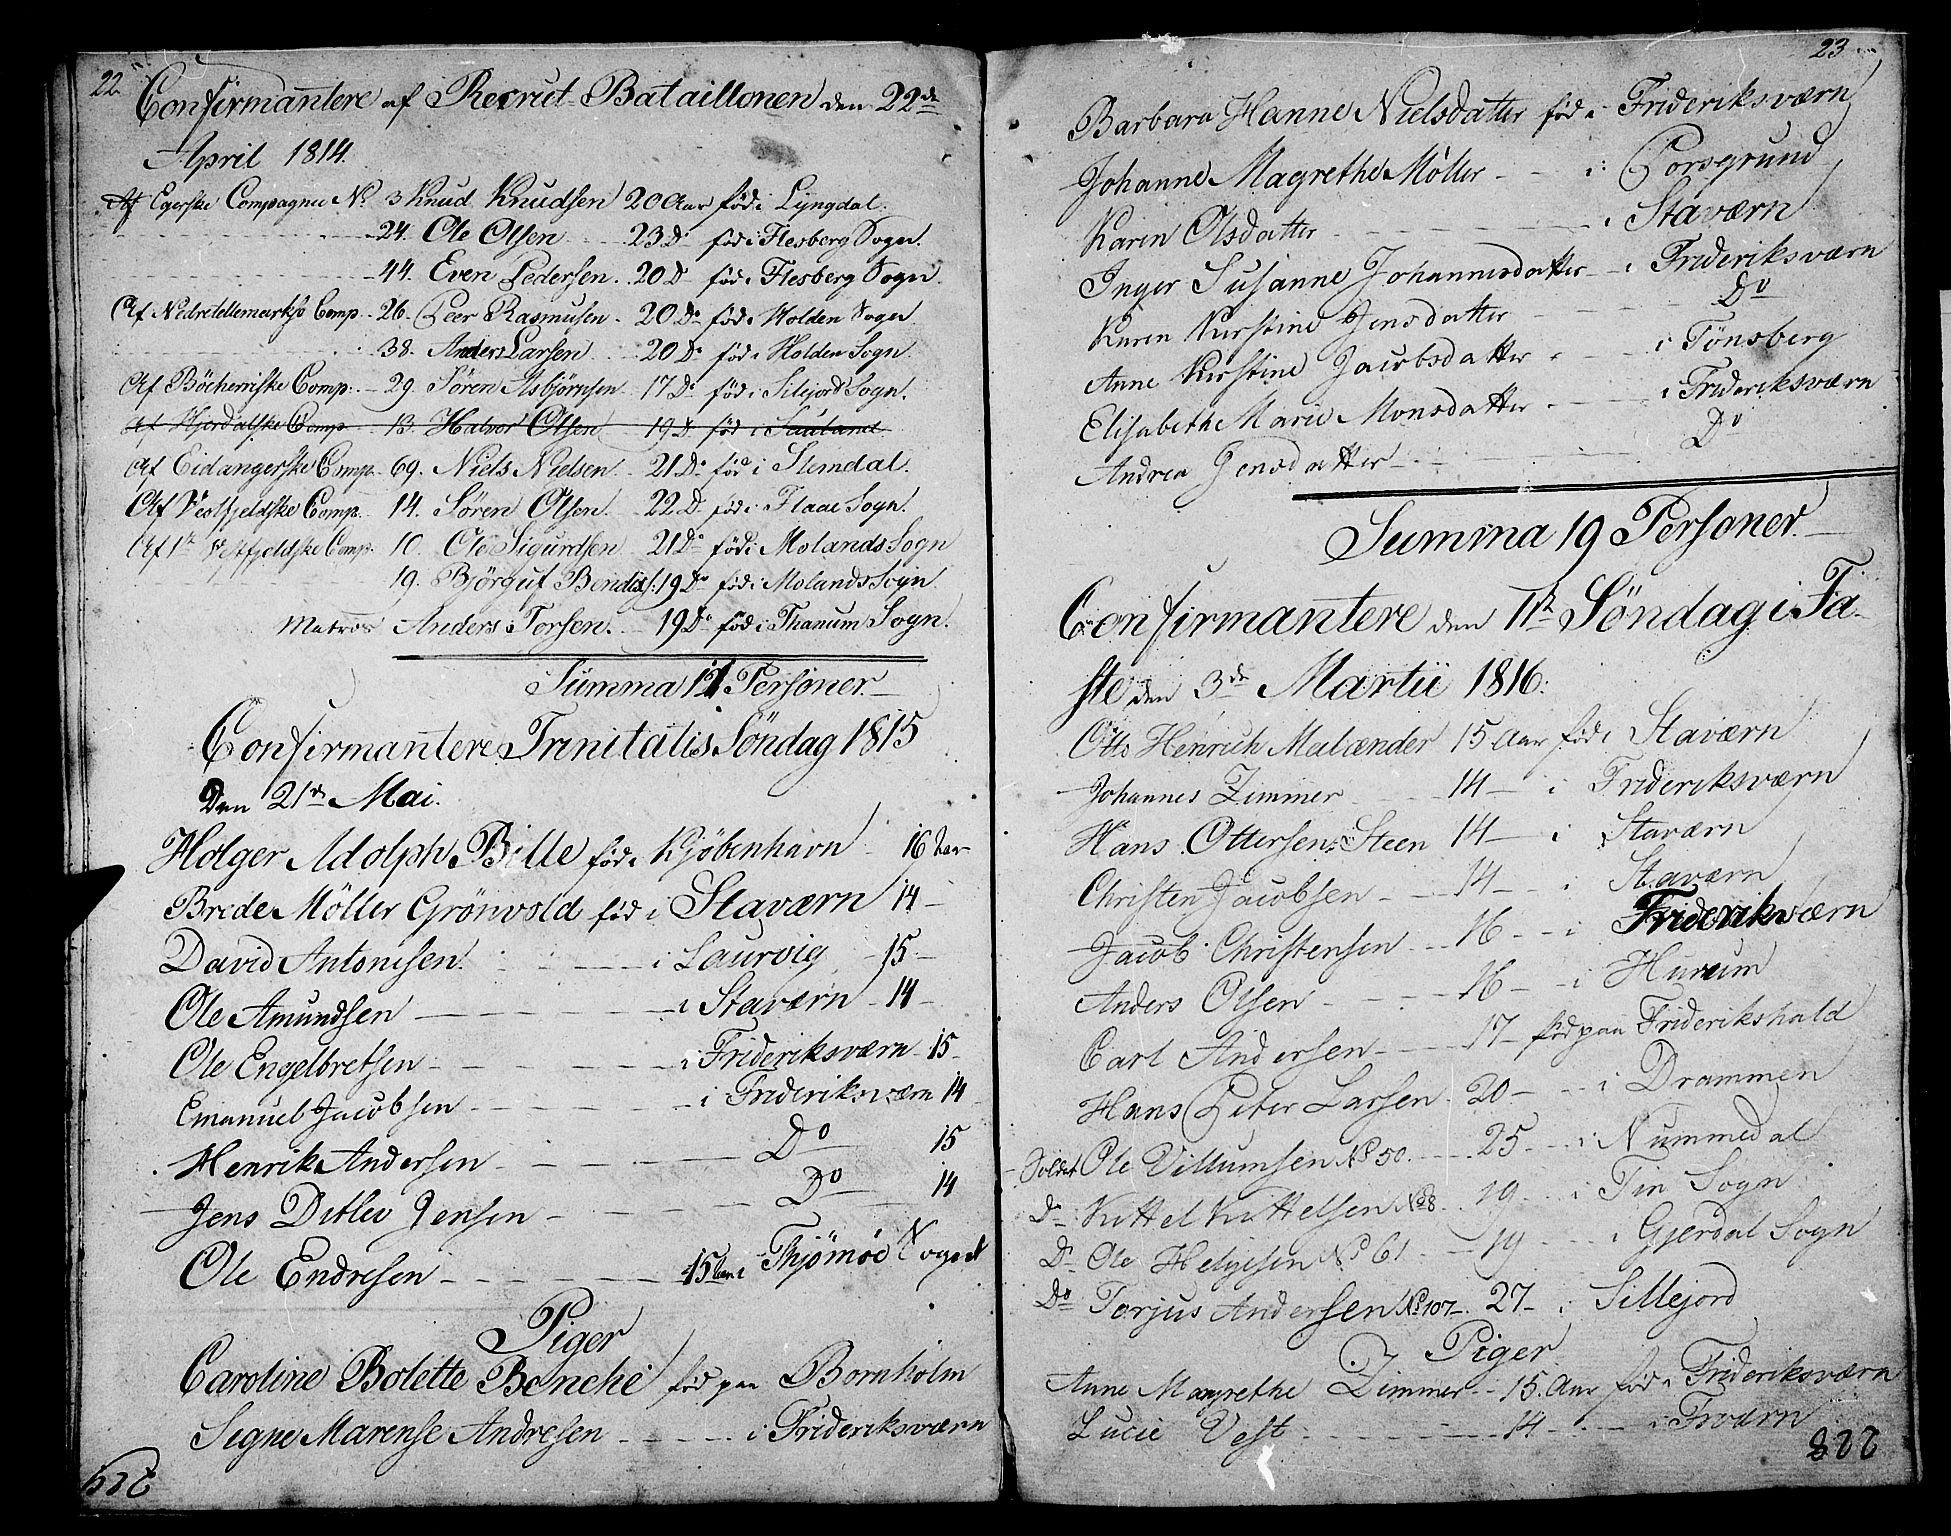 22
Confirmantere af Recrut-Bataillonen den 22de
April 1814.
Af Egerske Compagnie No 3 Knud Knudsen 20 Aar fød i Lyngdal.
24. Ole Olsen 23 Do fød i Flesberg Sogn.
44. Even Pedersen. 20 Do fød i Flesberg Sogn.
Af Nedretellemarkse Comp. 26. Peer Rasmusen 20 Do fød i Holden Sogn
38. Anders Larsen 20 Do fød i Holden Sogn.
Af Böcherriske Comp. 29. Sören Asbjörnsen 17 Do fød i Silejords Sogn.
Af Hjerdalske Comp 13. Halvor Olsen 19 D. fød i Sauland.
Af Eidangerske Comp. 69. Niels Nielsen. 21 Do fød i Slemdal.
Af Vestfjeldske Comp. 14. Sören Olsen. 22 D. fød i Flaae Sogn.
Af 1te Vestfjeldske Comp. 10. Ole Sigurdsen 21 Do fød i Molands Sogn
19. Börguf Bendixs. 19 Do fød i Molands Sogn.
Matros Anders Torsen. 19 Do fød i Thanum Sogn.
Summa 11 Personer.
Confirmantere Trinitatis Söndag 1815
Den 21de Mai.
Holger Adolph Bille fød i Kjöbenhavn 16 Aar
Brede Möller Grönvold fød i Staværn 14
David Antonisen i Laurvig 15
Ole Amundsen i Staværn 14
Ole Engelbretsen i Frideriksværn 15
Emanuel Jacobsen i Frideriksværn 14
Henrik Andersen Do 15
Jens Ditlev Jensen Do 14
Ole Endresen 15 Aar i Thjömöe Sogn
Piger
Caroline Bolette Benche fød paa Bornholm
Segne Marense Andresen i Frideriksværn
23
Barbara Hanne Nielsdatter fød i Frideriksværn
Johanne Magrethe Möller i Porsgrund
Karen Olsdatter i Staværn
Inger Susanne Johannesdatter i Frideriksværn
Karen Kirstine Jensdatter Do
Anne Kirstine Jacobsdatter i Tönsberg
Elisabeth Marie Monsdatter i Frideriksværn
Andrea Jensdatter Do
Summa 19 Personer.
Confirmantere den 1te Söndag i Fa-
ste den 3de Martii 1816.
Otto Henrich Melænder 15 Aar fød i Staværn
Johannes Zimmer 14 i Frideriksværn
Hans Ottersen Steen 14 i Staværn
Christen Jacobsen 14 i Staværn
Jacob Christensen 16 i Frideriksværn
Anders Olsen 16 i Hurum
Carl Andersen 17 fød paa Friderikshald
Hans Peter Larsen 20 i Drammen
Soldat Ole Villumsen No 50. 25 i Nummedal
Do Kittel Kittelsen No 8 19 i Tin Sogn
Do Ole Helgesen No 61 19 i Gjerdal Sogn
Do Torjus Andersen No 107 27 i Sillejord
Piger
Anne Margrethe Zimmer 15 Aar fød i Frideriksværn
Lucie Vest 14 i Frværn